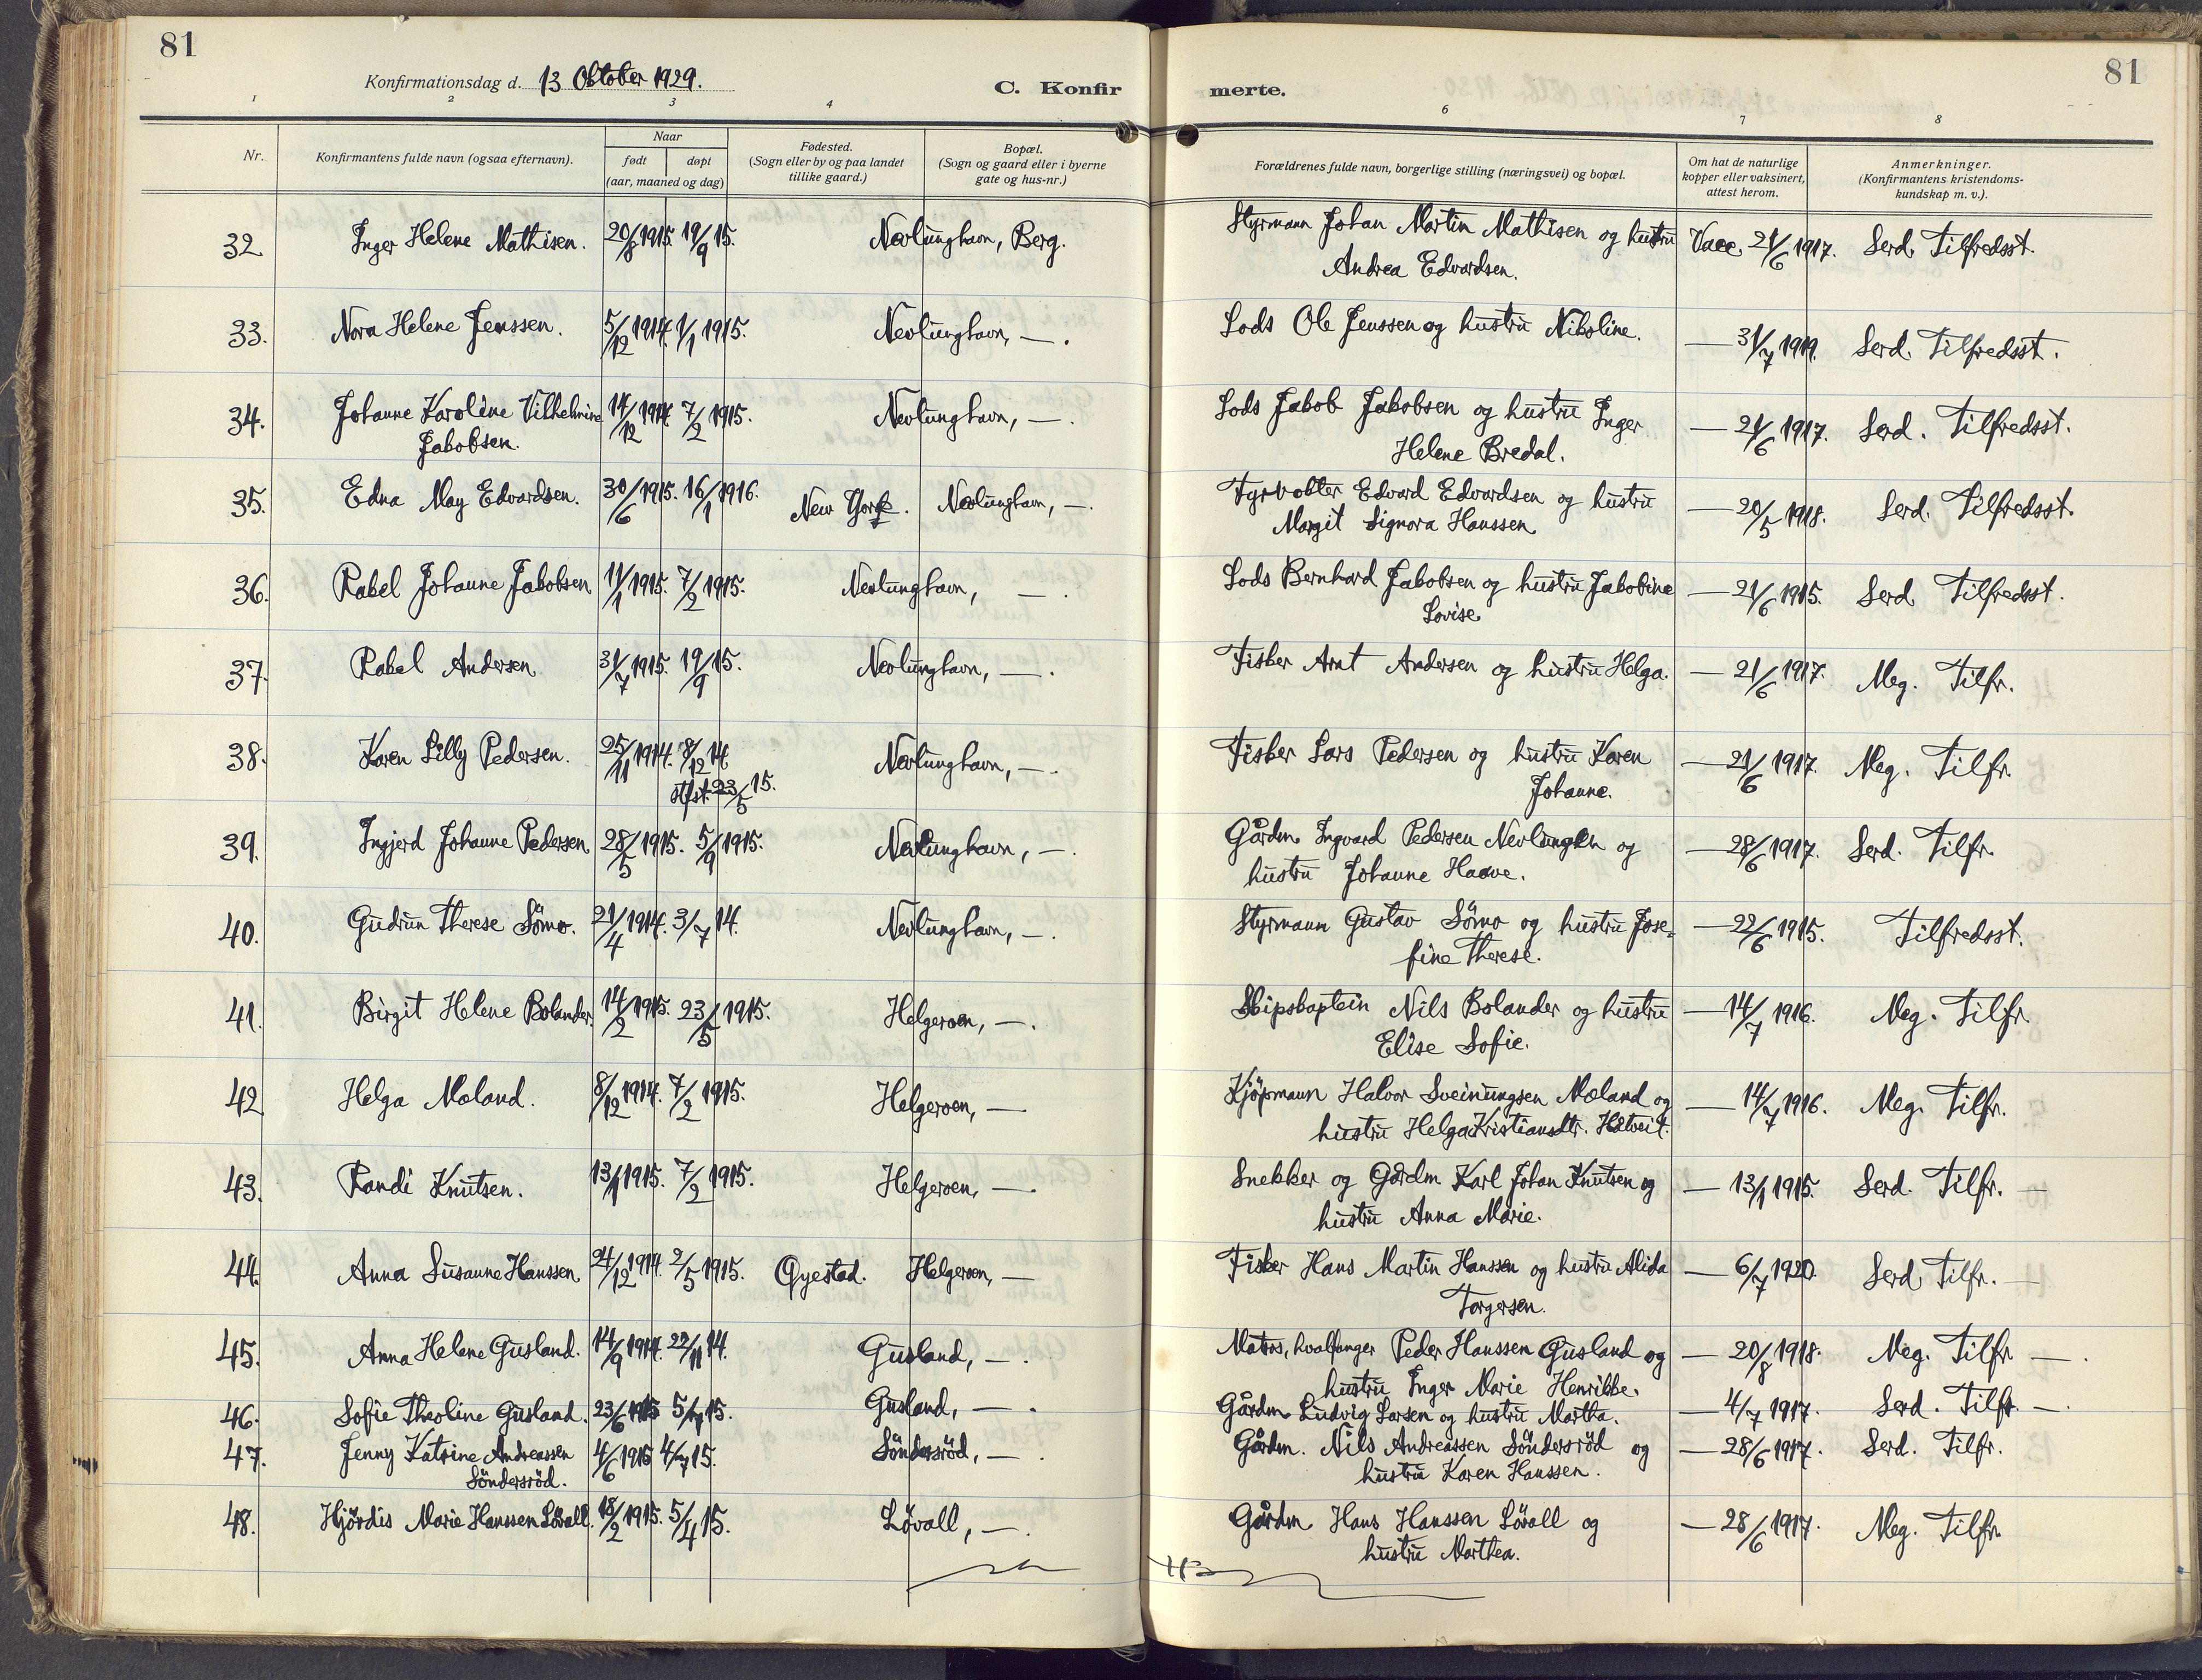 81
81
Konfirmationsdag d. 13 Oktober 1929.
C. Konfir
merte.
1 2 3 4 6 7 8
Nr.
Konfirmantens fulde navn (ogsaa efternavn).
Naar
født
døpt
(aar, maaned og dag)
Fødested.
(Sogn eller by og paa landet
tillike gaard.)
Bopæl.
(Sogn og gaard eller i byerne
gate og hus-nr.)
Forældrenes fulde navn, borgerlige stilling (næringsvei) og bopæl.
Om hat de naturlige
kopper eller vaksinert,
attest herom.
Anmerkninger.
(Konfirmantens kristendoms-
kundskap m. v.).
32 Inger Helene Mathisen. 20/8 1915. 19/9 15. Nevlunghavn, Berg. Styrmann Johan Martin Mathisen og hustru Vacc. 21/6 1917. Serd. Tilfredsst.
Andrea Edvardsen.
33. Nora Helene Jenssen. 5/12 1914. 1/1 1915. Nevlunghavn, —. Lods Ole Jenssen og hustru Nikoline. — 31/7 1919. Serd. Tilfredsst.
34. Johanne Karoline Vilhelmine 14/12 1914. 7/2 1915. Nevlunghavn, —. Lods Jakob Jakobsen og hustru Inger — 21/6 1917. Serd. Tilfredsst.
Jakobsen. Helene Bredal.
35. Edna May Edvardsen. 30/6 1915. 16/1 1916. New York. Nevlunghavn, —. Fyrvokter Edvard Edvardsen og hustru — 20/5 1918. Serd. Tilfredsst.
Margit Signora Hanssen
36. Rakel Johanne Jakobsen 11/1 1915. 7/2 1915. Nevlunghavn, —. Lods Bernhard Jakobsen og hustru Jakobine — 21/6 1915. Serd. Tilfredsst.
Lovise
37. Rakel Andersen 31/7 1915. 19/9 15. Nevlunghavn, —. Fisker Arnt Andersen og hustru Helga. — 21/6 1917. Meg. Tilfr.
38. Karen Lilly Pedersen. 25/11 1914. 8/12 14. Nevlunghavn, —. Fisker Lars Pedersen og hustru Karen — 21/6 1917. Meg. Tilfr.
stfst. 23/5 15. Johanne.
39. Ingjerd Johanne Pedersen 28/5 1915. 5/9 1915. Nevlunghavn, —. Gårdm. Ingvard Pedersen Nevlungen og — 28/6 1917. Serd. Tilfr.
hustru Johanne Haave.
40. Gudrun Therese Sömo. 21/4 1914. 3/7 14. Nevlunghavn, —. Styrmann Gustav Sömo og hustru Jose- — 22/6 1915. Tilfredsst.
fine Therese.
41. Birgit Helene Bolander. 14/2 1915. 23/5 1915. Helgeroen, —. Skipskaptein Nils Bolander og hustru — 14/7 1916. Meg. Tilfr.
Elise Sofie.
42 Helga Moland. 8/12 1914. 7/2 1915. Helgeroen, — Kjöpmann Halvor Sveinungsen Moland og — 14/7 1916. Meg. Tilfr.
hustru Helga Kristiansdtr. Hatveit.
43. Randi Knutsen. 13/1 1915. 7/2 1915. Helgeroen, —. Snekker og Gårdm Karl Johan Knutsen og — 13/1 1915. Serd. Tilfr. —
hustru Anna Marie.
44. Anna Susanne Hanssen. 24/12 1914. 2/5 1915. Øyestad. Helgeroen, — Fisker Hans Martin Hanssen og hustru Alida — 6/7 1920. Serd. Tilfr. —
Torgersen.
45. Anna Helene Gusland. 14/9 1914. 22/11 14. Gusland, —. Matros, hvalfanger Peder Hanssen Gusland og — 20/8 1918. Meg. Tilfr —.
hustru Inger Marie Henrikke.
46. Sofie Theoline Gusland. 23/6 1915 5/7 15. Gusland, —. Gårdm Ludvig Larsen og hustru Martha. — 4/7 1917. Serd. Tilfr. —.
47. Jenny Katrine Andreassen 4/6 1915 4/7 15. Söndersröd, —. Gårdm. Nils Andreassen Söndersröd og — 28/6 1917. Serd. Tilfr.
Söndersröd. hustru Karen Hanssen.
48. Hjördis Marie Hanssen Lövall. 18/2 1915. 5/4 15. Lövall, —. Gårdm Hans Hanssen Lövall og — 28/6 1917. Meg. Tilfr.
hustru Marthea.